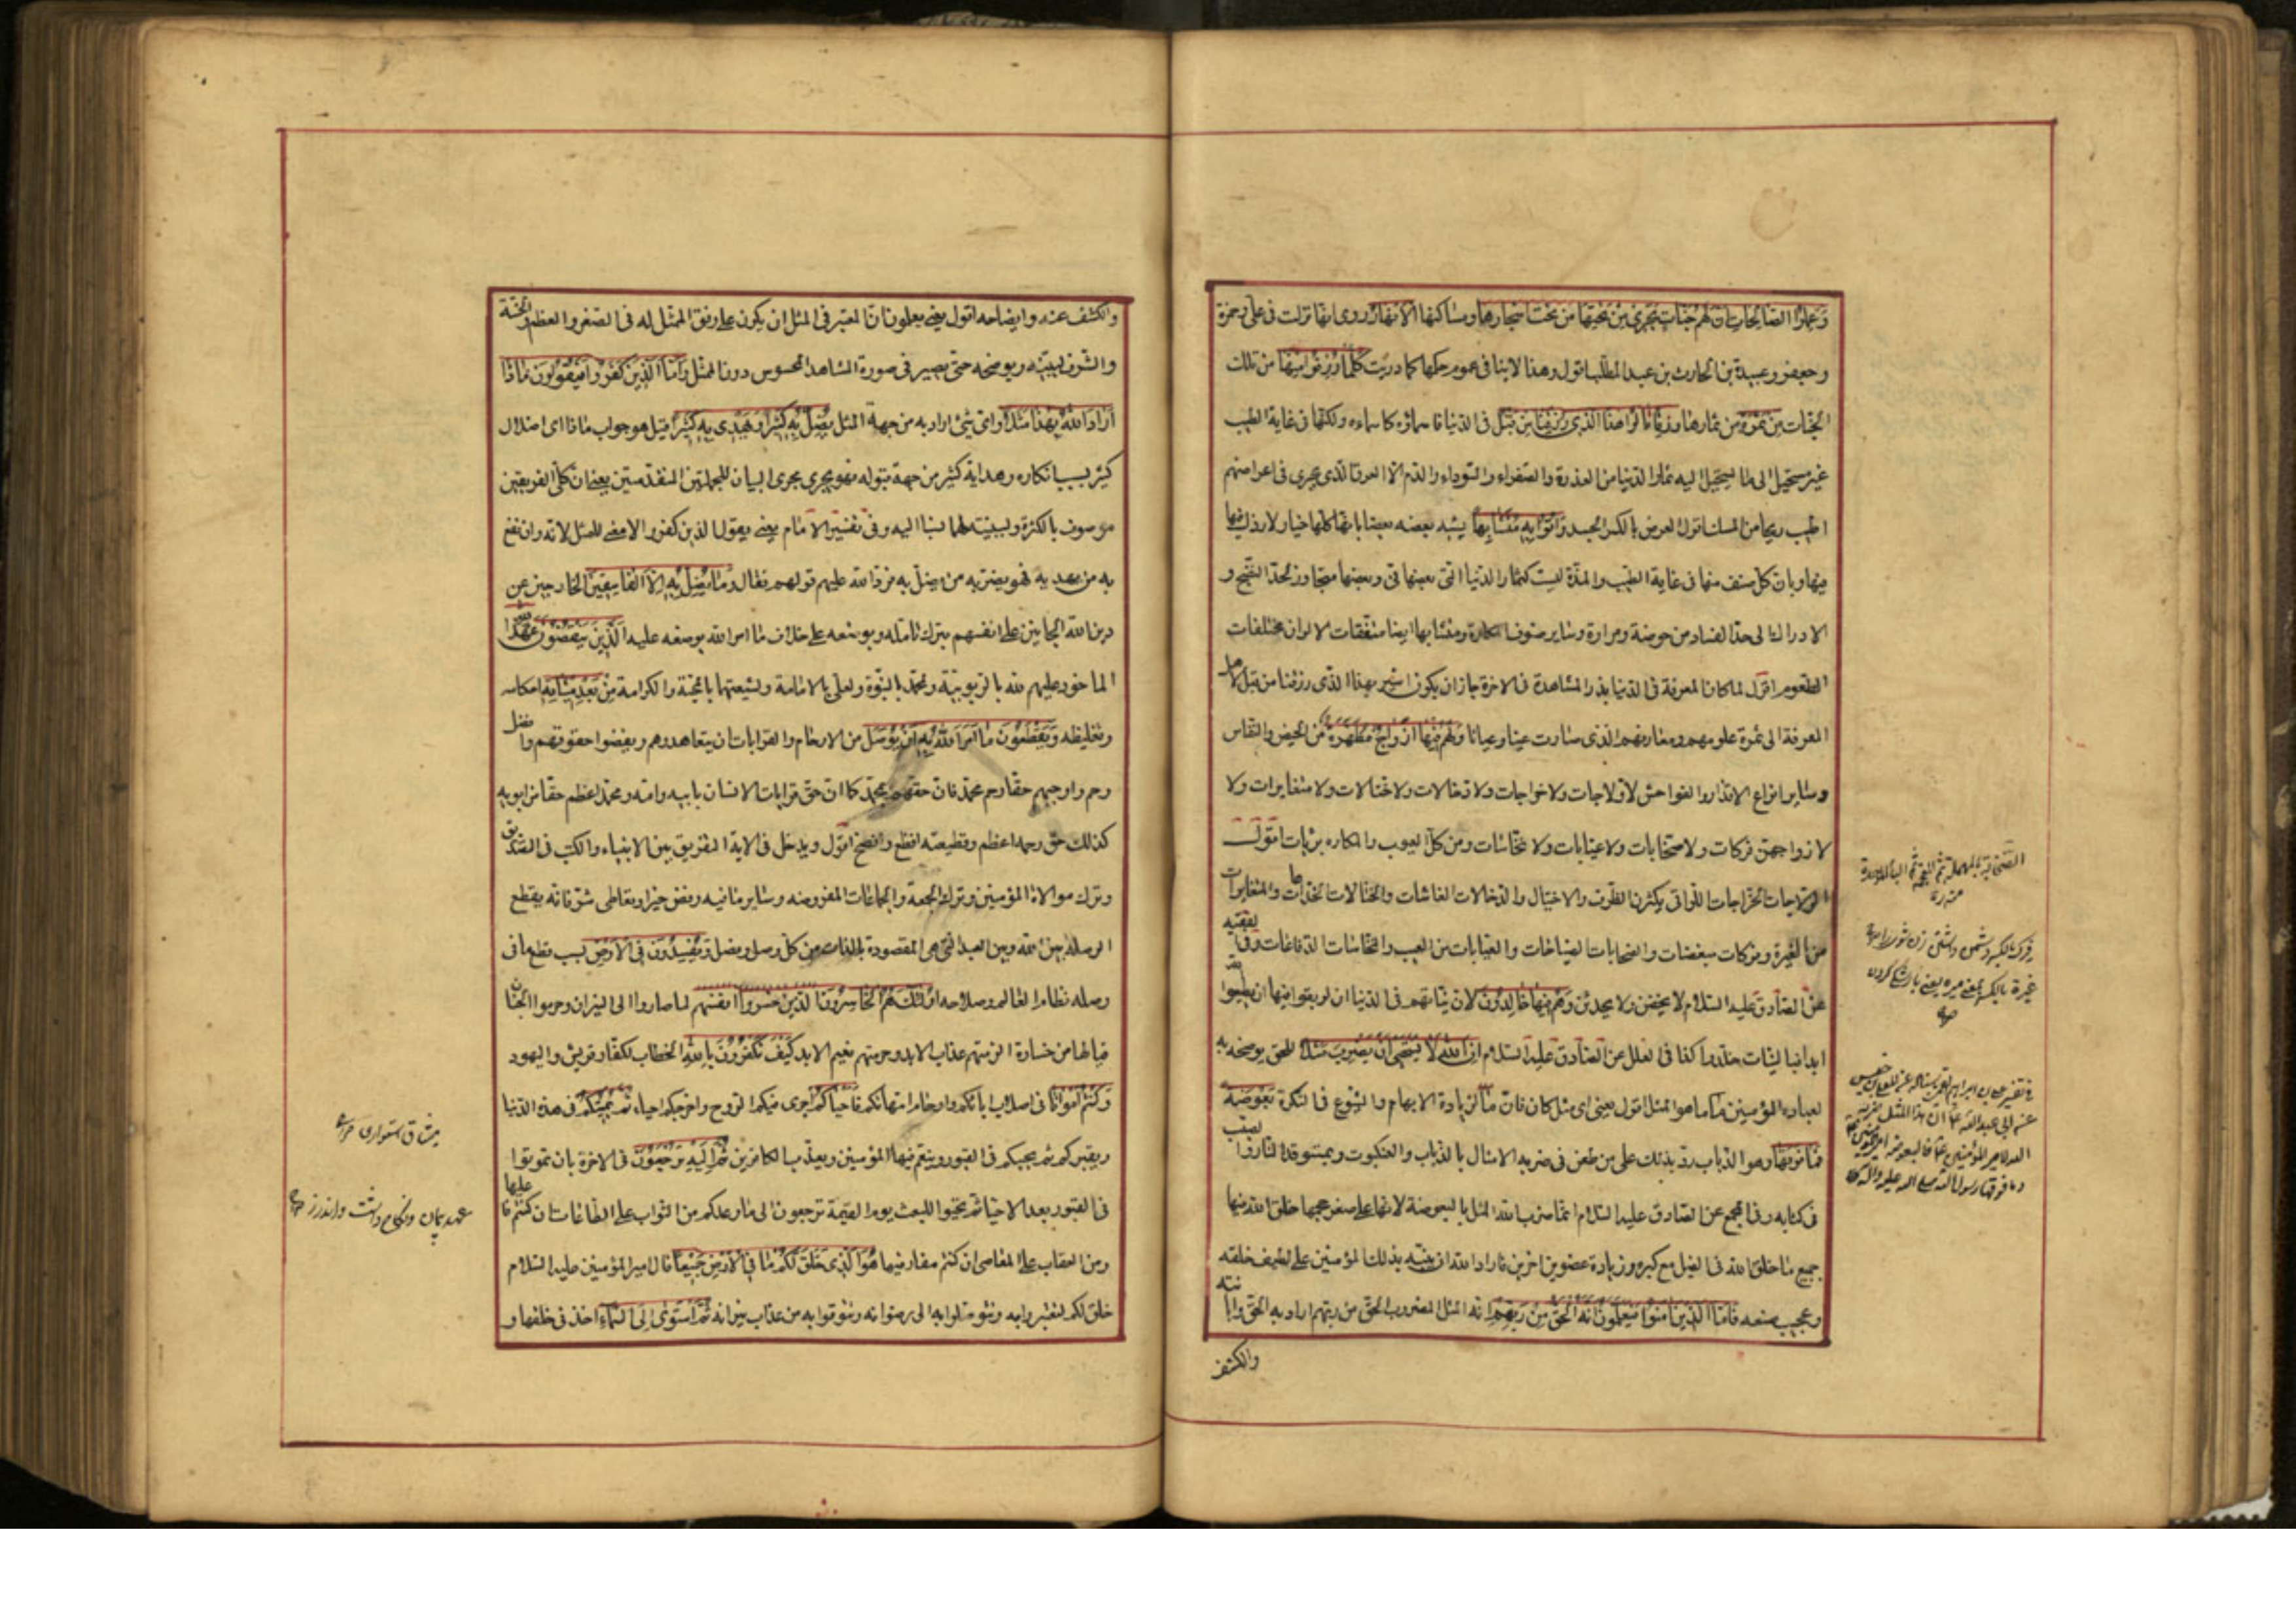 وَعَمِلُوا الصَّالِحاتِ اَنَّ لَهُمْ جَنّاتٍ تَجْرِي مِنْ تَحْتِهَا من تحت اشجارها ومساكنها الْاَنْهارُ روى انها نزلت فى على وحمزة
وجعفر وعبيدة بن الحارث بن عبد المطلب اقول وهذا لا ينافى عموم حكمها كما دريت كُلَّما رُزِقُوا مِنْها من تلك
الجنات مِنْ ثَمَرَةٍ من ثمارها رِزْقًا قالُوا هذَا الَّذِي رُزِقْنا مِنْ قَبْلُ فى الدنيا فاسماؤه كاسماءه ولكنها فى غاية الطيب
غير مستحيل الى ما يستحيل اليه ثمار الدنيا من العذرة والصفراء والسوداء والدم الا العرق الذى يجرى فى اعراضهم
اطيب ريحا من المسك اقول العرض بالكسر الجسد وَاُتُوا بِهِ مُتَشابِهًا يشبه بعضه بعضا بانها كلها خيار لا رذل فيها
وبان كل صنف منها فى غاية الطيب واللذة ليست كثمار الدنيا التى بعضها نى وبعضها متجاوز لحد النضج و
الادراك الى حد الفساد من حموضة ومرارة وساير صنوف المكاره ومتشابها ايضا متفقات الالوان مختلفات
الطعوم اقول لما كانت المعرفة فى الدنيا بذر المشاهدة فى الاخرة جاز ان يكون اشير بهذا الذى رزقنا من قبل الى
المعرفة اى ثمرة علومهم ومعارفهم الذى صارت عينا وعيانا وَلَهُمْ فِيها اَزْواجٌ مُطَهَّرَةٌ من الحيض والنفاس
وساير انواع الاقذار والفواحش لا ولاجات ولا خراجات ولا دخالات ولا ختالات ولا متغايرات ولا
لازواجهن فركات ولا صخابات ولا عيابات ولا فحاشات ومن كل العيوب والمكاره بريات اقول
الولاجات الخراجات اللواتى يكثرن الظرف والاختيال والدخالات الغاشات والختالات الخداعات والمتغايرات
من الغيرة وفركات مبغضات والصخابات الصياحات والعيابات من العيب والنخاسات الدفاعات وفى الفقيه
عن الصادق عليه السلام لا يحضن ولا يحدثن وَهُمْ فِيها خالِدُونَ لان نياتهم فى الدنيا ان لو بقوا فيها ان يطيعوا الله
ابدا فبالنيات خلدوا كذا فى العلل عن الصادق عليه السلام اِنَّ اللهَ لا يَسْتَحْيِي اَنْ يَضْرِبَ مَثَلًا للحق يوضحه به
لعباده المؤمنين ما ما هو المثل اقول يعنى اى مثل كان فان ما لزيادة الابهام والشيوع فى النكرة بَعُوضَةً
فَما فَوْقَها وهو الذباب رد بذلك على من طعن فى ضربه الامثال بالذباب والعنكبوت وبمستوقد النار والصيب
فى كتابه وفى المجمع عن الصادق عليه السلام انما ضرب الله المثل بالبعوضة لانها على صغر حجمها خلق الله فيها
جميع ما خلق الله فى الفيل مع كبره وزيادة عضوين اخرين فاراد الله ان ينبه بذلك المؤمنين على لطيف خلقه
وعجيب صنعه فَاَمَّا الَّذِينَ امَنُوا فَيَعْلَمُونَ اَنَّهُ الْحَقُّ مِنْ رَبِّهِمْ انه المثل المضروب الحق من ربهم اراد به الحق وابانته
والكشف
الصخب بالمهملة ثم المعجمة ثم الباء الموحدة
فرك بالكسر دشمن داشتن زن شوى را
غيرة بالكسر
فى تفسير على بن ابراهيم
عن ابى عبد الله ع ان هذا المثل ضربه
الله لامير المؤمنين ع فالبعوضة امير المؤمنين ع
وما فوقها رسول الله صلى الله عليه واله
والكشف عنه وايضاحه اقول يعنى يعلمون ان المعتبر فى المثل ان يكون على وفق الممثل له فى الصغر والعظم والخسة
والشرف ليبينه ويوضحه حتى يصير فى صورة المشاهد المحسوس دون الممثل وَاَمَّا الَّذِينَ كَفَرُوا فَيَقُولُونَ ماذا
اَرادَ اللهُ بِهذا مَثَلًا اى اى شىء اراد به من جهة المثل يُضِلُّ بِهِ كَثِيرًا وَيَهْدِي بِهِ كَثِيرًا قيل هو جواب ماذا اى اضلال
كثير بسبب انكاره وهداية كثير من جهة قبوله فهو يجرى مجرى البيان للجملتين المتقدمتين يعنى ان كلا الفريقين
موصوف بالكثرة وبسببيته لهما نسبا اليه وفى تفسير الامام يعنى يقول الذين كفروا لا معنى للمثل لانه وان نفع
به من يهديه فهو يضر به من يضل به فرد الله عليهم قولهم فقال وَما يُضِلُّ بِهِ اِلَّا الْفاسِقِينَ الخارجين عن
دين الله الجانين على انفسهم بترك تامله وبوضعه على خلاف ما امر الله بوضعه عليه الَّذِينَ يَنْقُضُونَ عَهْدَ اللهِ
الماخوذ عليهم لله بالربوبية ولمحمد بالنبوة ولعلى بالامامة ولشيعتهما بالمحبة والكرامة مِنْ بَعْدِ مِيثاقِهِ احكامه
وتغليظه وَيَقْطَعُونَ ما اَمَرَ اللهُ بِهِ اَنْ يُوصَلَ من الارحام والقرابات ان يتعاهدوهم ويقضوا حقوقهم وافضل
رحم واوجبهم حقا رحم محمد فان حقهم بمحمد كما ان حق قرابات الانسان بابيه وامه ومحمد اعظم حقا من ابويه
كذلك حق رحمه اعظم وقطيعته افظع وافضح اقول ويدخل فى الاية التفريق بين الانبياء والكتب فى التصديق
وترك موالاة المؤمنين وترك الجمعة والجماعات المفروضه وساير ما فيه رفض خير او تعاطى شر فانه يقطع
الوصلة بين الله وبين العبد التى هى المقصودة بالذات من كل وصل وفصل وَيُفْسِدُونَ فِي الْاَرْضِ بسبب قطع ما فى
وصله نظام العالم وصلاحه اُولئِكَ هُمُ الْخاسِرُونَ الذين خسروا انفسهم لما صاروا الى النيران وحرموا الجنان
فيالها من خسارة الزمتهم عذاب الابد وحرمتهم نعيم الابد كَيْفَ تَكْفُرُونَ بِاللهِ الخطاب لكفار قريش واليهود
وَكُنْتُمْ اَمْواتًا فى اصلاب ابائكم وارحام امهاتكم فَاَحْياكُمْ اجرى فيكم الروح واخرجكم احياء ثُمَّ يُمِيتُكُمْ فى هذه الدنيا
ويقبركم ثم يحييكم فى القبور وينعم فيها المؤمنين ويعذب الكافرين ثُمَّ اِلَيْهِ تُرْجَعُونَ فى الاخرة بان تموتوا
فى القبور بعد الاحياء ثم تحيوا للبعث يوم القيمة ترجعون الى ما وعدكم من الثواب على الطاعات ان كنتم فاعليها
ومن العقاب على المعاصى ان كنتم مقارفيها هُوَ الَّذِي خَلَقَ لَكُمْ ما فِي الْاَرْضِ جَمِيعًا قال امير المؤمنين عليه السلام
خلق لكم لتعتبروا به وتتوصلوا به الى رضوانه وتتوقوا به من عذاب نيرانه ثُمَّ اسْتَوى اِلَى السَّماءِ اخذ فى خلقها و
ميثاق استوارى
عهد پيمان ونگاه داشت واندرز